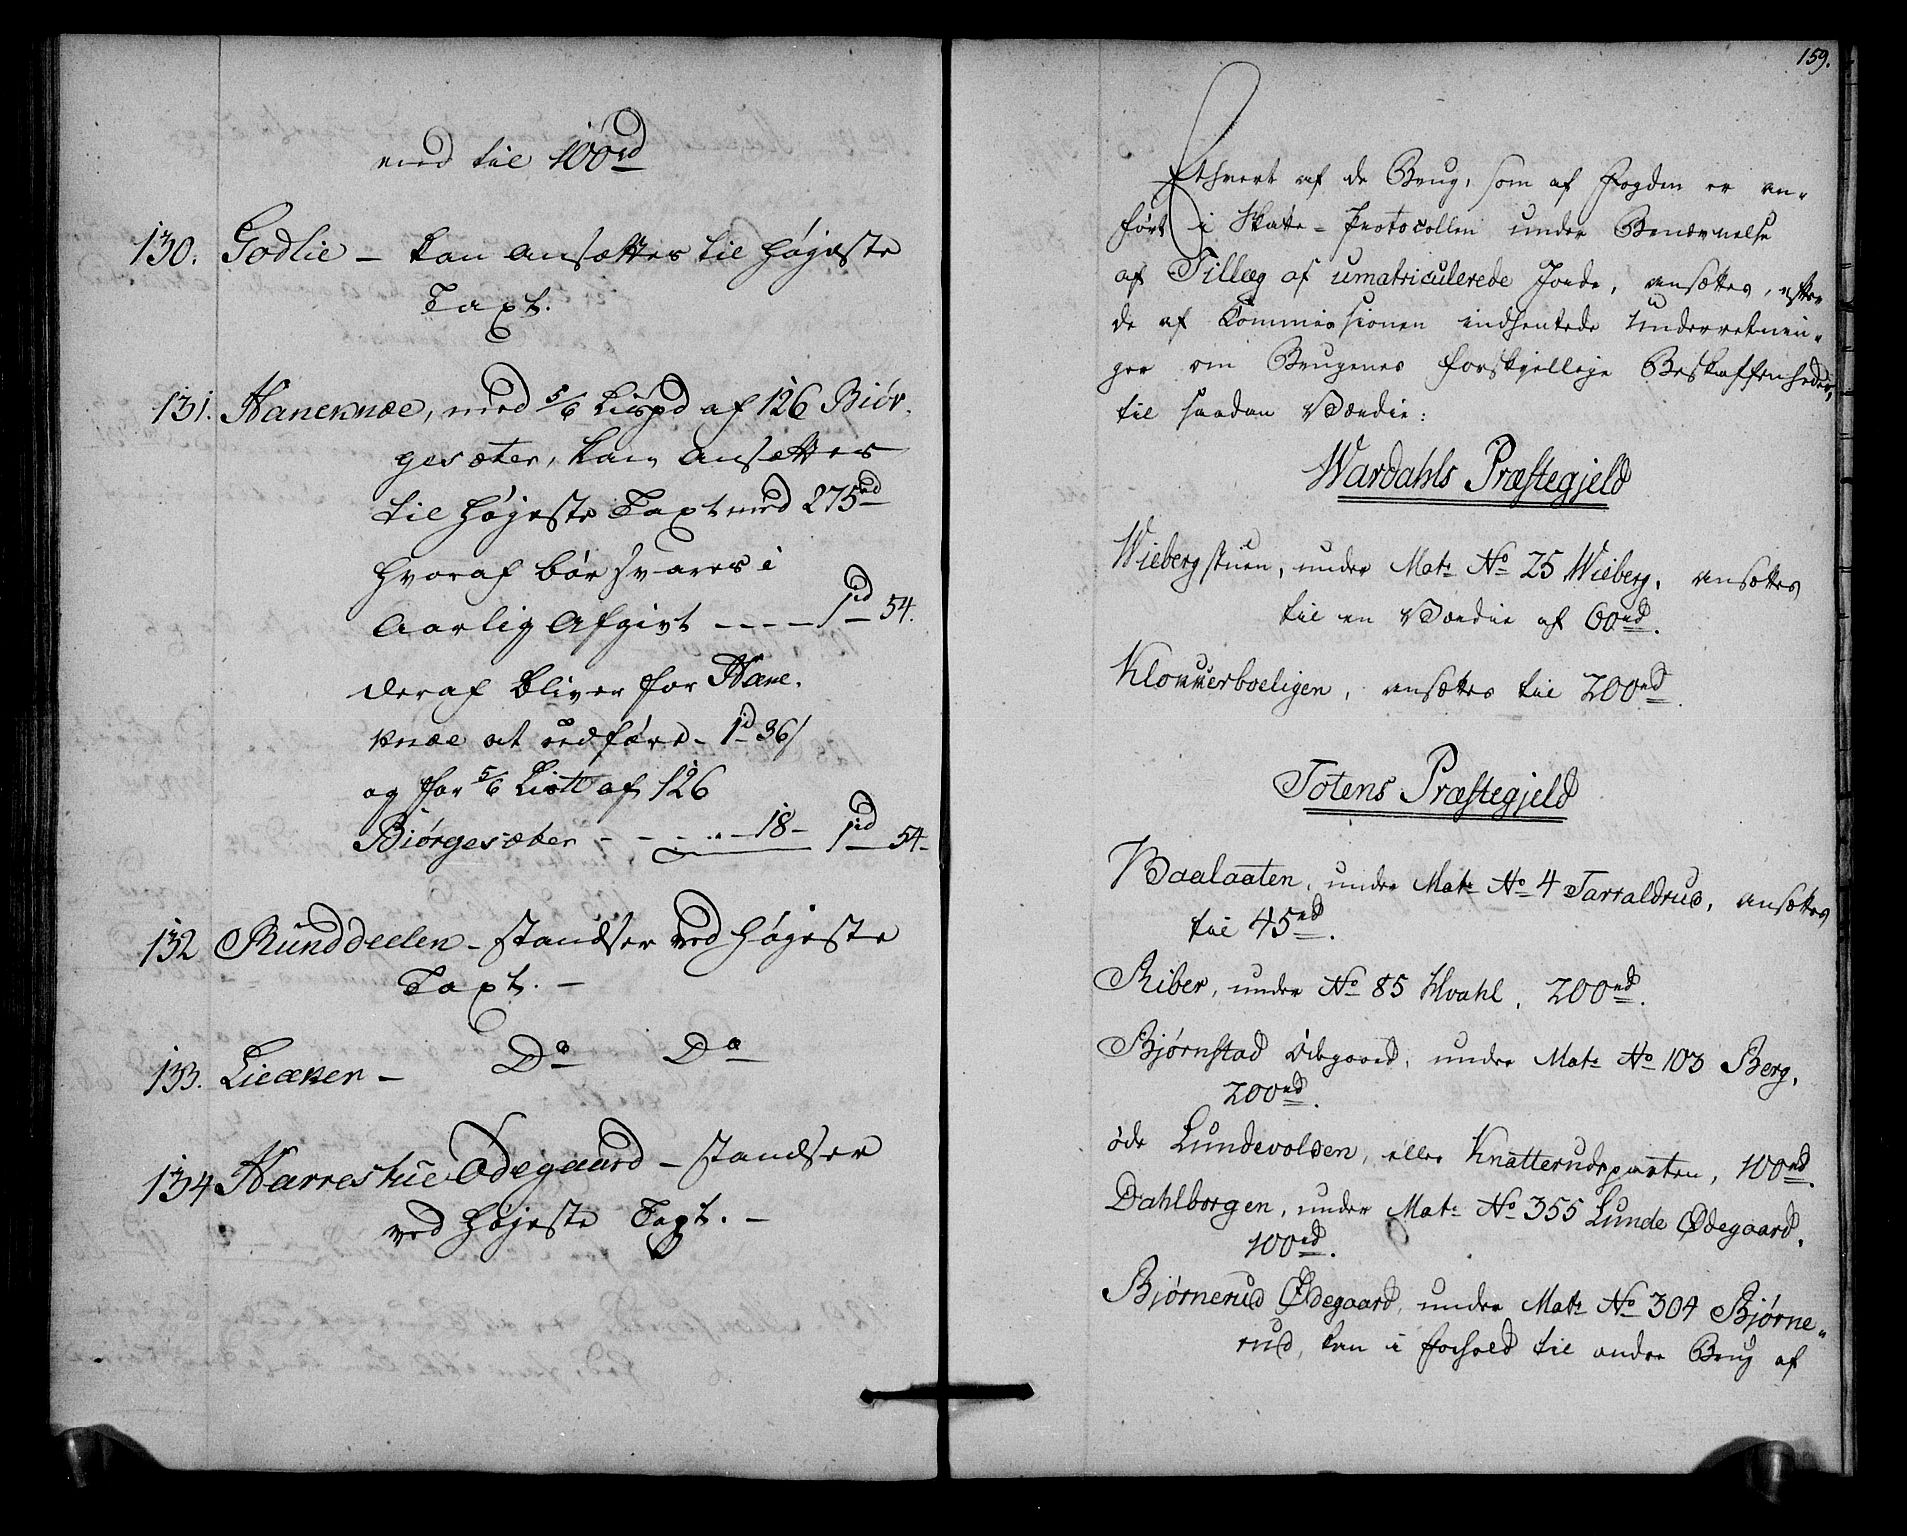 med til 100rd
130. Godlie – kan ansættes til høyeste
Taxt.
131. Haneknæ, med 5/6 Lispd af 126 Biør-
gesæter, kan ansættes
til høyeste Taxt med 275rd
hvoraf bør svares i
Aarlig Afgivt - - - - 1rd 54.
deraf bliver for Hane-
knæe at udføre - 1rd 36/
og for 5/6 List af 126
Biørgesæter - - - - - 18 - 1rd 54 -
132 Runddeelen - standser ved høyeste
Taxt. -
133. Lieæken - Do Do
134 Harreshue Ødegaard - standser
ved høyeste Taxt. -
159.
Ethvert af de Brug, som af Fogden er an-
ført i Skatte-Protocollen under Benævnelse
af Tillæg af umatriculerede Jorde, ansættes, efter
de af Commissionen indhentede Underretnin-
ger om Brugenes forskjellige Beskaffenheder,
til saadan Værdie:
Wardahls Præstegjeld
Wiebergstuen, under Mat: No 25 Wieberg, ansættes
til en Værdie af 60rd.
Klouuerboeligen, ansættes til 200rd.
Totens Præstegjeld
Baalaaten, under Mat: No 4 Tarraldrud, ansættes
til 45rd.
Riber, under No 85 Hvahl, 200rd.
Bjørnstad Ødegaard, under Mat: No 103 Berg,
200rd.
øde Lundevolden, eller Knatterudsparten, 100rd.
Dahlborgen, under Mat: No 355 Lunde Ødegaard,
100rd.
Bjørnerud Ødegaard, under Mat: No 304 Bjørne-
rud, kan i Forhold til andre Brug af